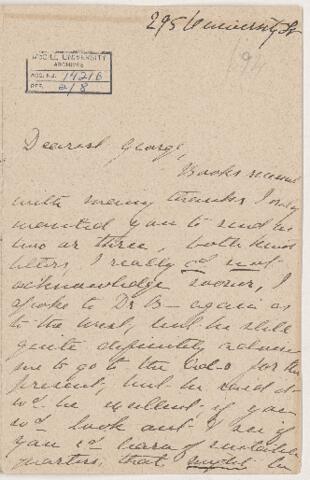 295 University St
McGILL UNIVERSITY
ARCHIVES
ACC. NO. 1421b
REF. 2/8
Dearest George,
Books received
with many thanks I only
wanted you to send me
two or three, both kind
letters, I really cd not
acknowledge sooner, I
spoke to Dr B— again as
to the west, but he still
quite definitely advises
me to go to the for the
present, but he said it
wd. be excellent if you
wd. look out & see if
you cd hear of suitable
quarters, that might be